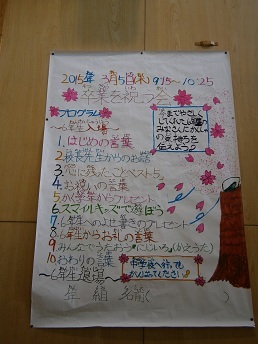 2015年 3月5日(木) 9:15～10:25
卒業を祝う会
プログラム
～6年生入場～
今までやさしく
してくれた6年生の
みなさんにかんしゃ
の気持ちを
伝えよう
1.はじめの言葉
2.校長先生からのお話
3.心に残ったことベスト5
4.お祝いの言葉
5.各学年からプレゼント
6.スマイルキッズで遊ぼう
7.6年生へのよせ書きのプレゼント
8.6年生からお礼の言葉
9.みんなでうたおう「にじいろ」(かえうた)
10.おわりの言葉
～6年生退場～
中学校へ行っても
がんばってください
年 組 名前( )